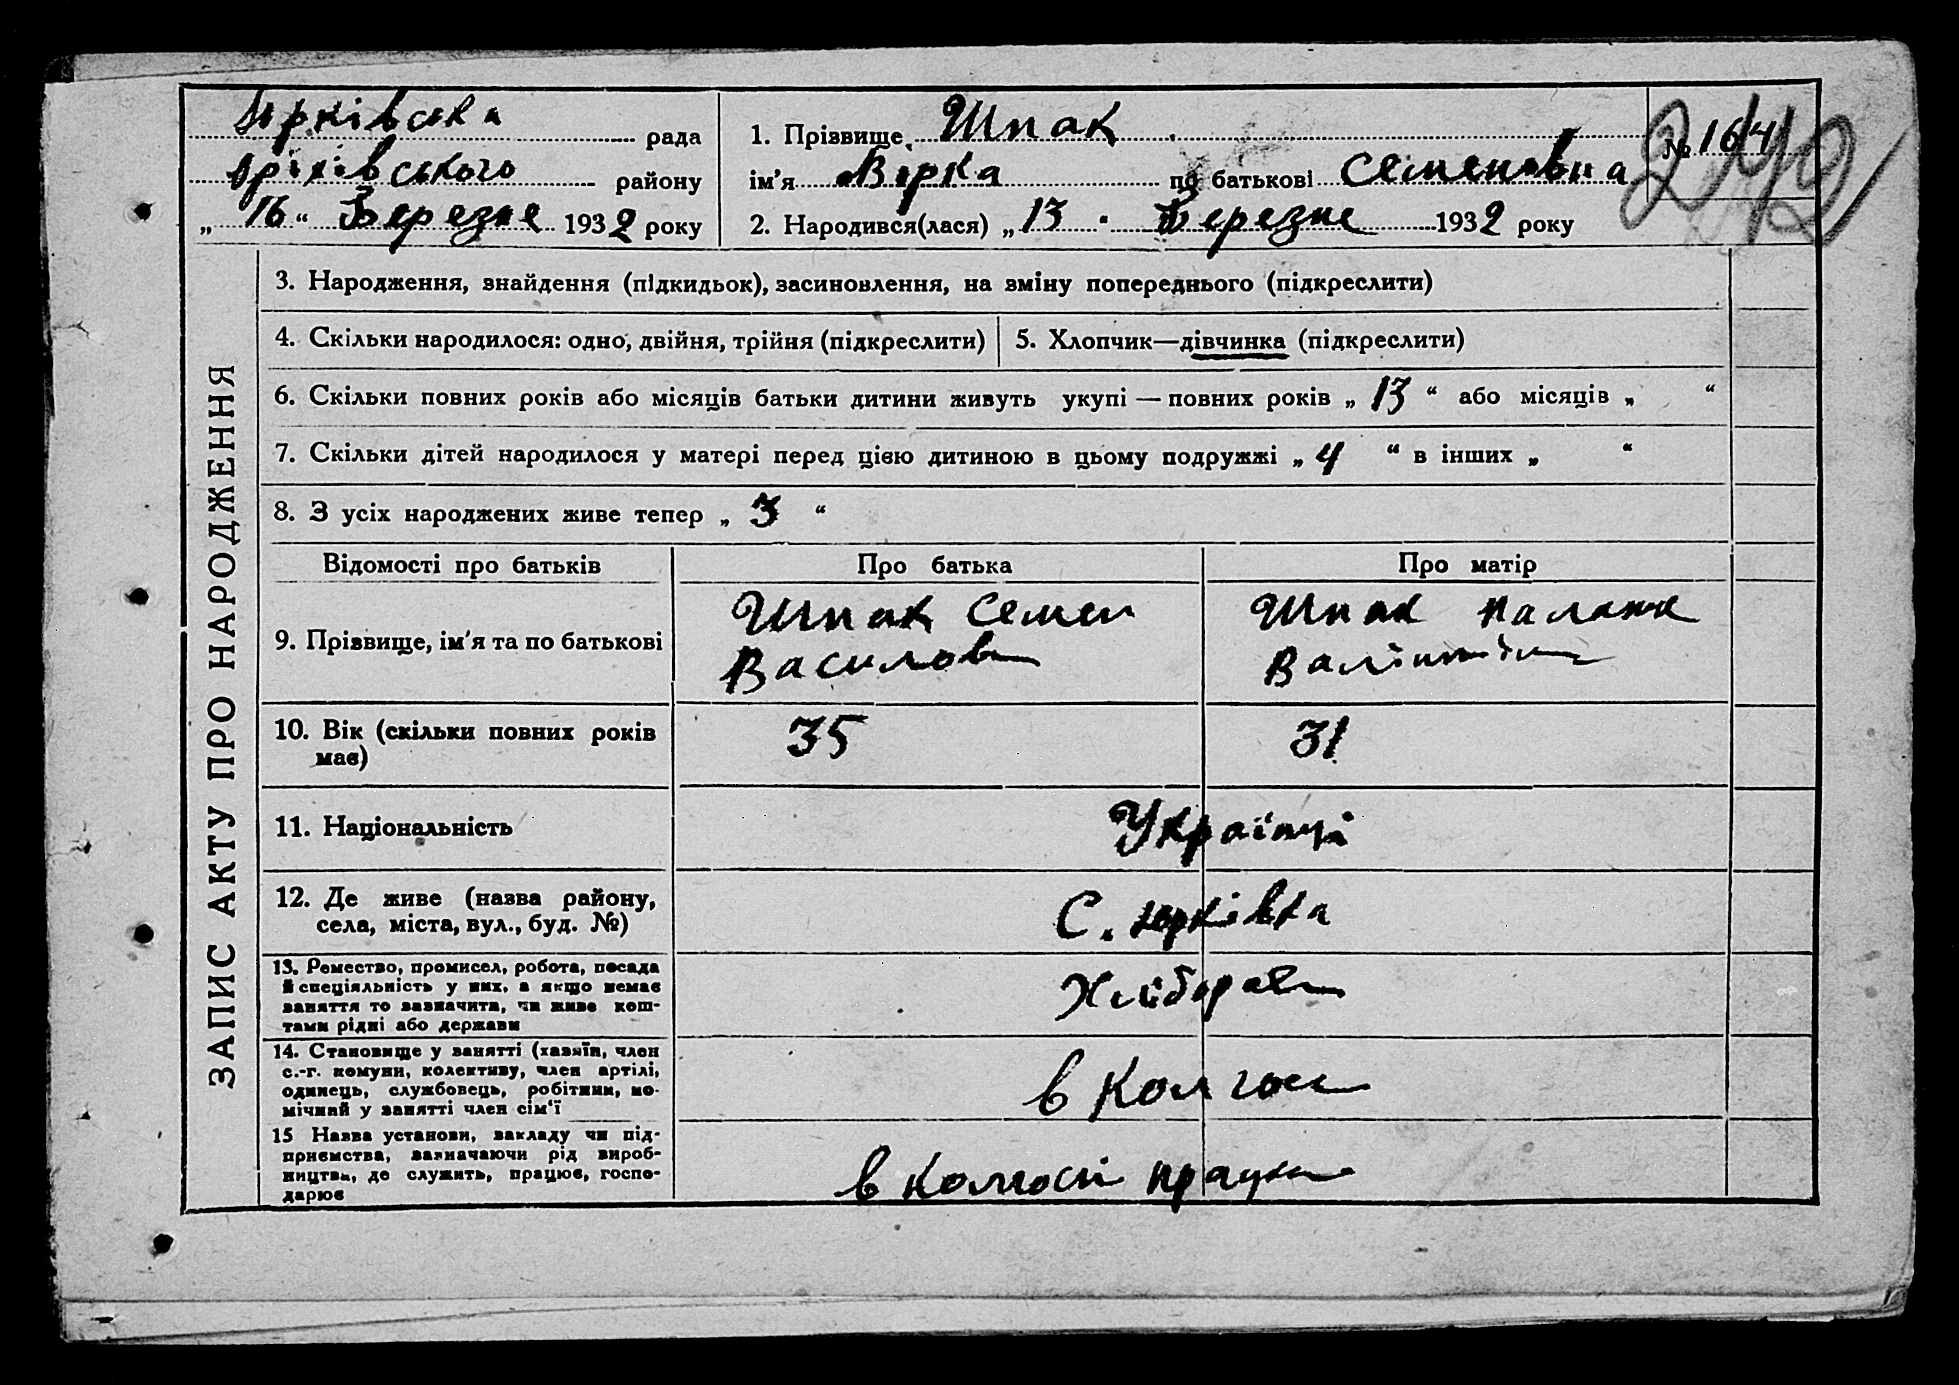 Юрківська рада
Оріхівського району
„ 16 “ Березня 1932 року
1. Прізвище Шпак
ім’я Вірка по батькові Семенівна
2. Народився(лася) „ 13 “ Березня 1932 року
№ 164
242
ЗАПИС АКТУ ПРО НАРОДЖЕННЯ
3. Народження, знайдення (підкидьок), засиновлення, на зміну попереднього (підкреслити)
4. Скільки народилося: одно, двійня, трійня (підкреслити)
5. Хлопчик—дівчинка (підкреслити)
6. Скільки повних років або місяців батьки дитини живуть укупі — повних років „ 13 “ або місяців „ “
7. Скільки дітей народилося у матері перед цією дитиною в цьому подружжі „ 4 “ в інших „ “
8. З усіх народжених живе тепер „ 3 “
Відомості про батьків
Про батька
Про матір
9. Прізвище, ім’я та по батькові
Шпак Семен
Василов
Шпак
10. Вік (скільки повних років
має)
35
31
11. Національність
Українці
12. Де живе (назва району,
села, міста, вул., буд. №)
С. Юрківка
13. Ремество, промисел, робота, посада
й спеціяльність у них, а якщо немає
заняття то зазначити, чи живе кош-
тами рідні або держави
Хлібороб
14. Становище у занятті (хазяїн, член
с.-г. комуни, колективу, член артілі,
одинець, службовець, робітник, по-
мічний у занятті член сім’ї
в Колгосп
15 Назва установи, закладу чи під-
приємства, зазначаючи рід вироб-
ництва, де служить, працює, госпо-
дарює
в колгоспі працює